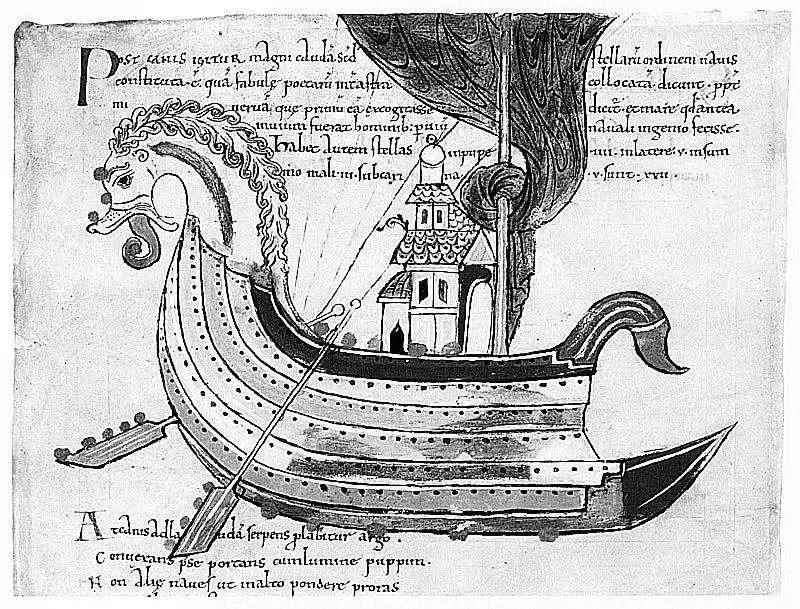 Post canis igitur magni caudā stellarū ordinem nauis
constituta ē quā fabulę poetarū int astra collocatā dicunt ppt
mineruā quę primū eā excogitasse dicit et mare qd antea
inuium fuerat hominib; puiū nauali ingenio fecisse.
Habet autem stellas in puppe .IIII. in latere .V. in sum
mo mali .III. sub carina .V. sunt .XVII
At canis ad caudā serpens plabitur argo.
Conuersam pse portans cum lumine puppim.
Non alię naues ut in alto pondere proras